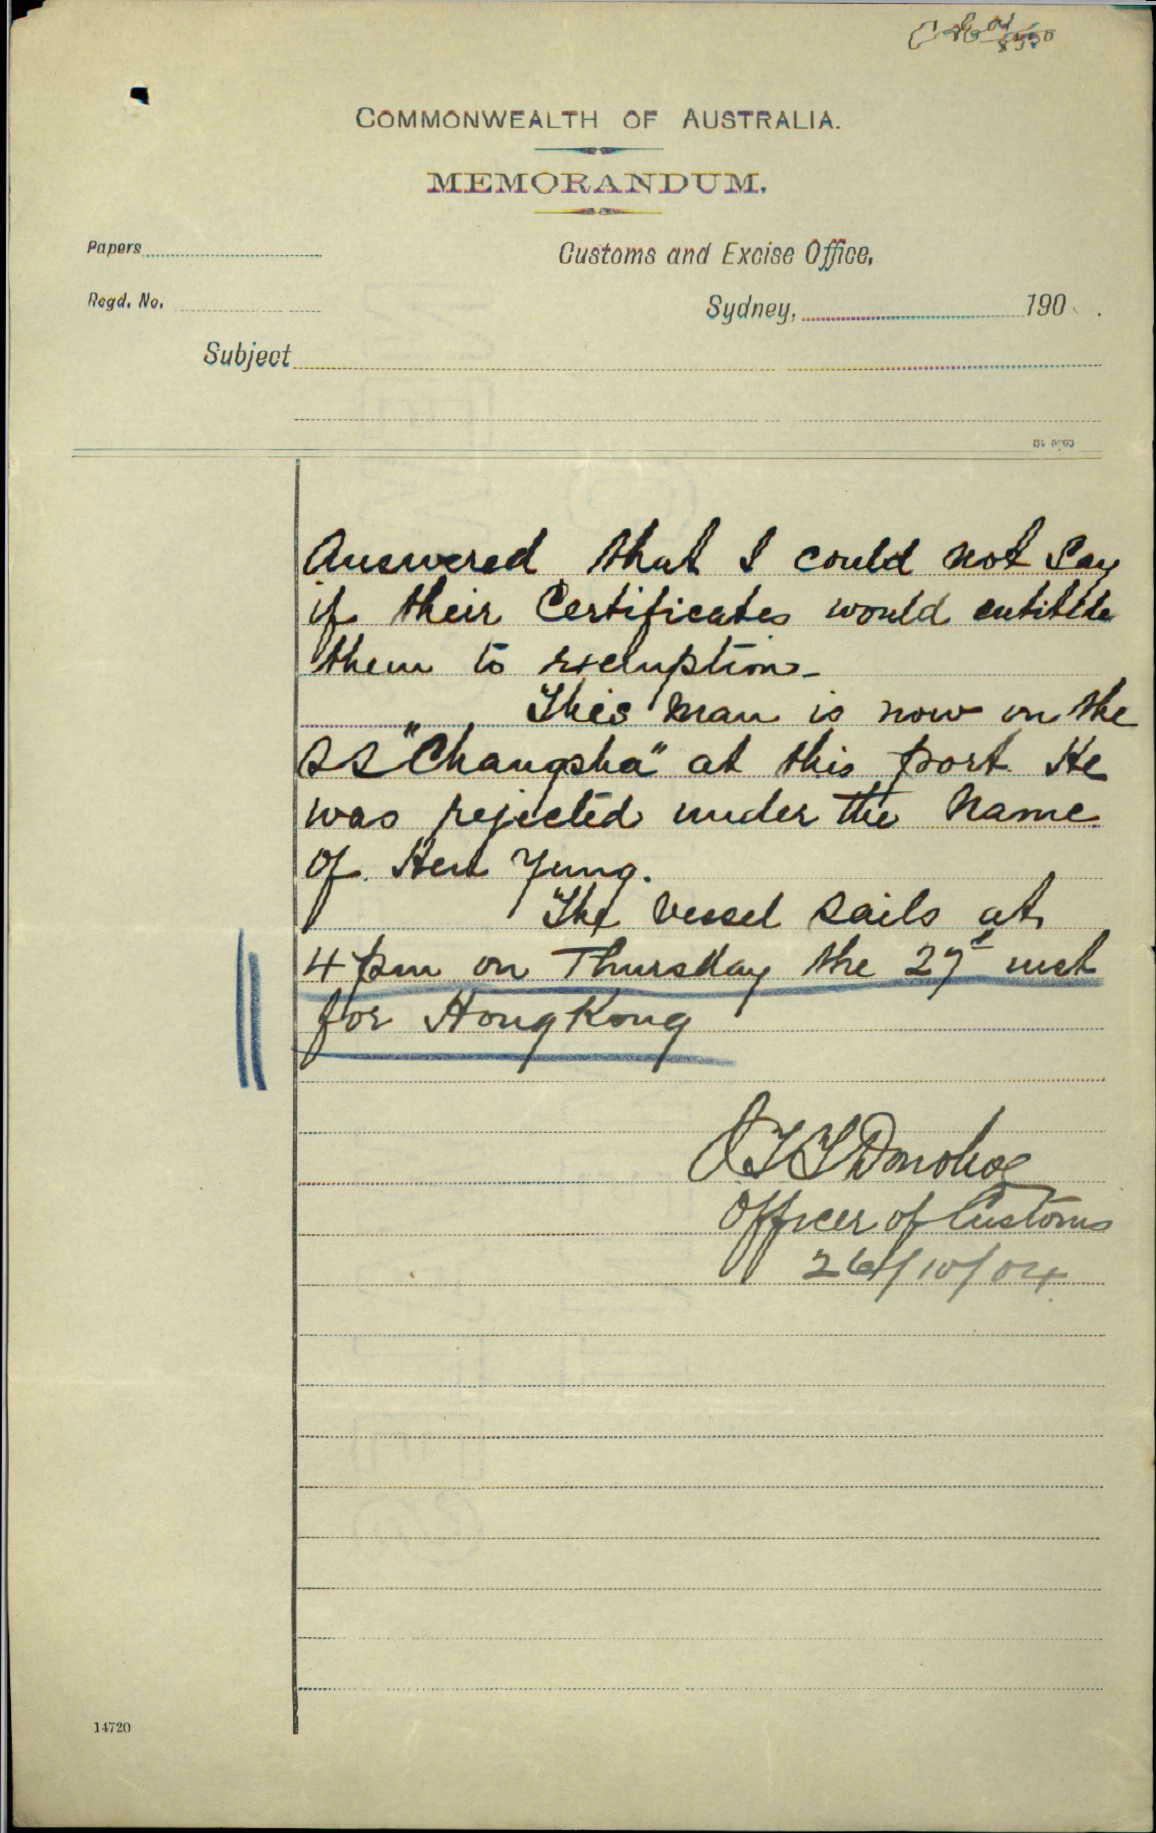 COMMONWEALTH OF AUSTRALIA.
MEMORANDUM.
Papers
Customs and Excise Office,
Regd. No.
Sydney, 190 .
Subject
Answered that I could not Say
if their Certificates would entitle
them to exemption -
This man is now on the
SS "Changsha" at this port He
was rejected under the Name
of Yung.
The vessel Sails at
4 pm on Thursday the 27th inst
for Hong Kong
Donohoe
Officer of Customs
26/10/04
14720